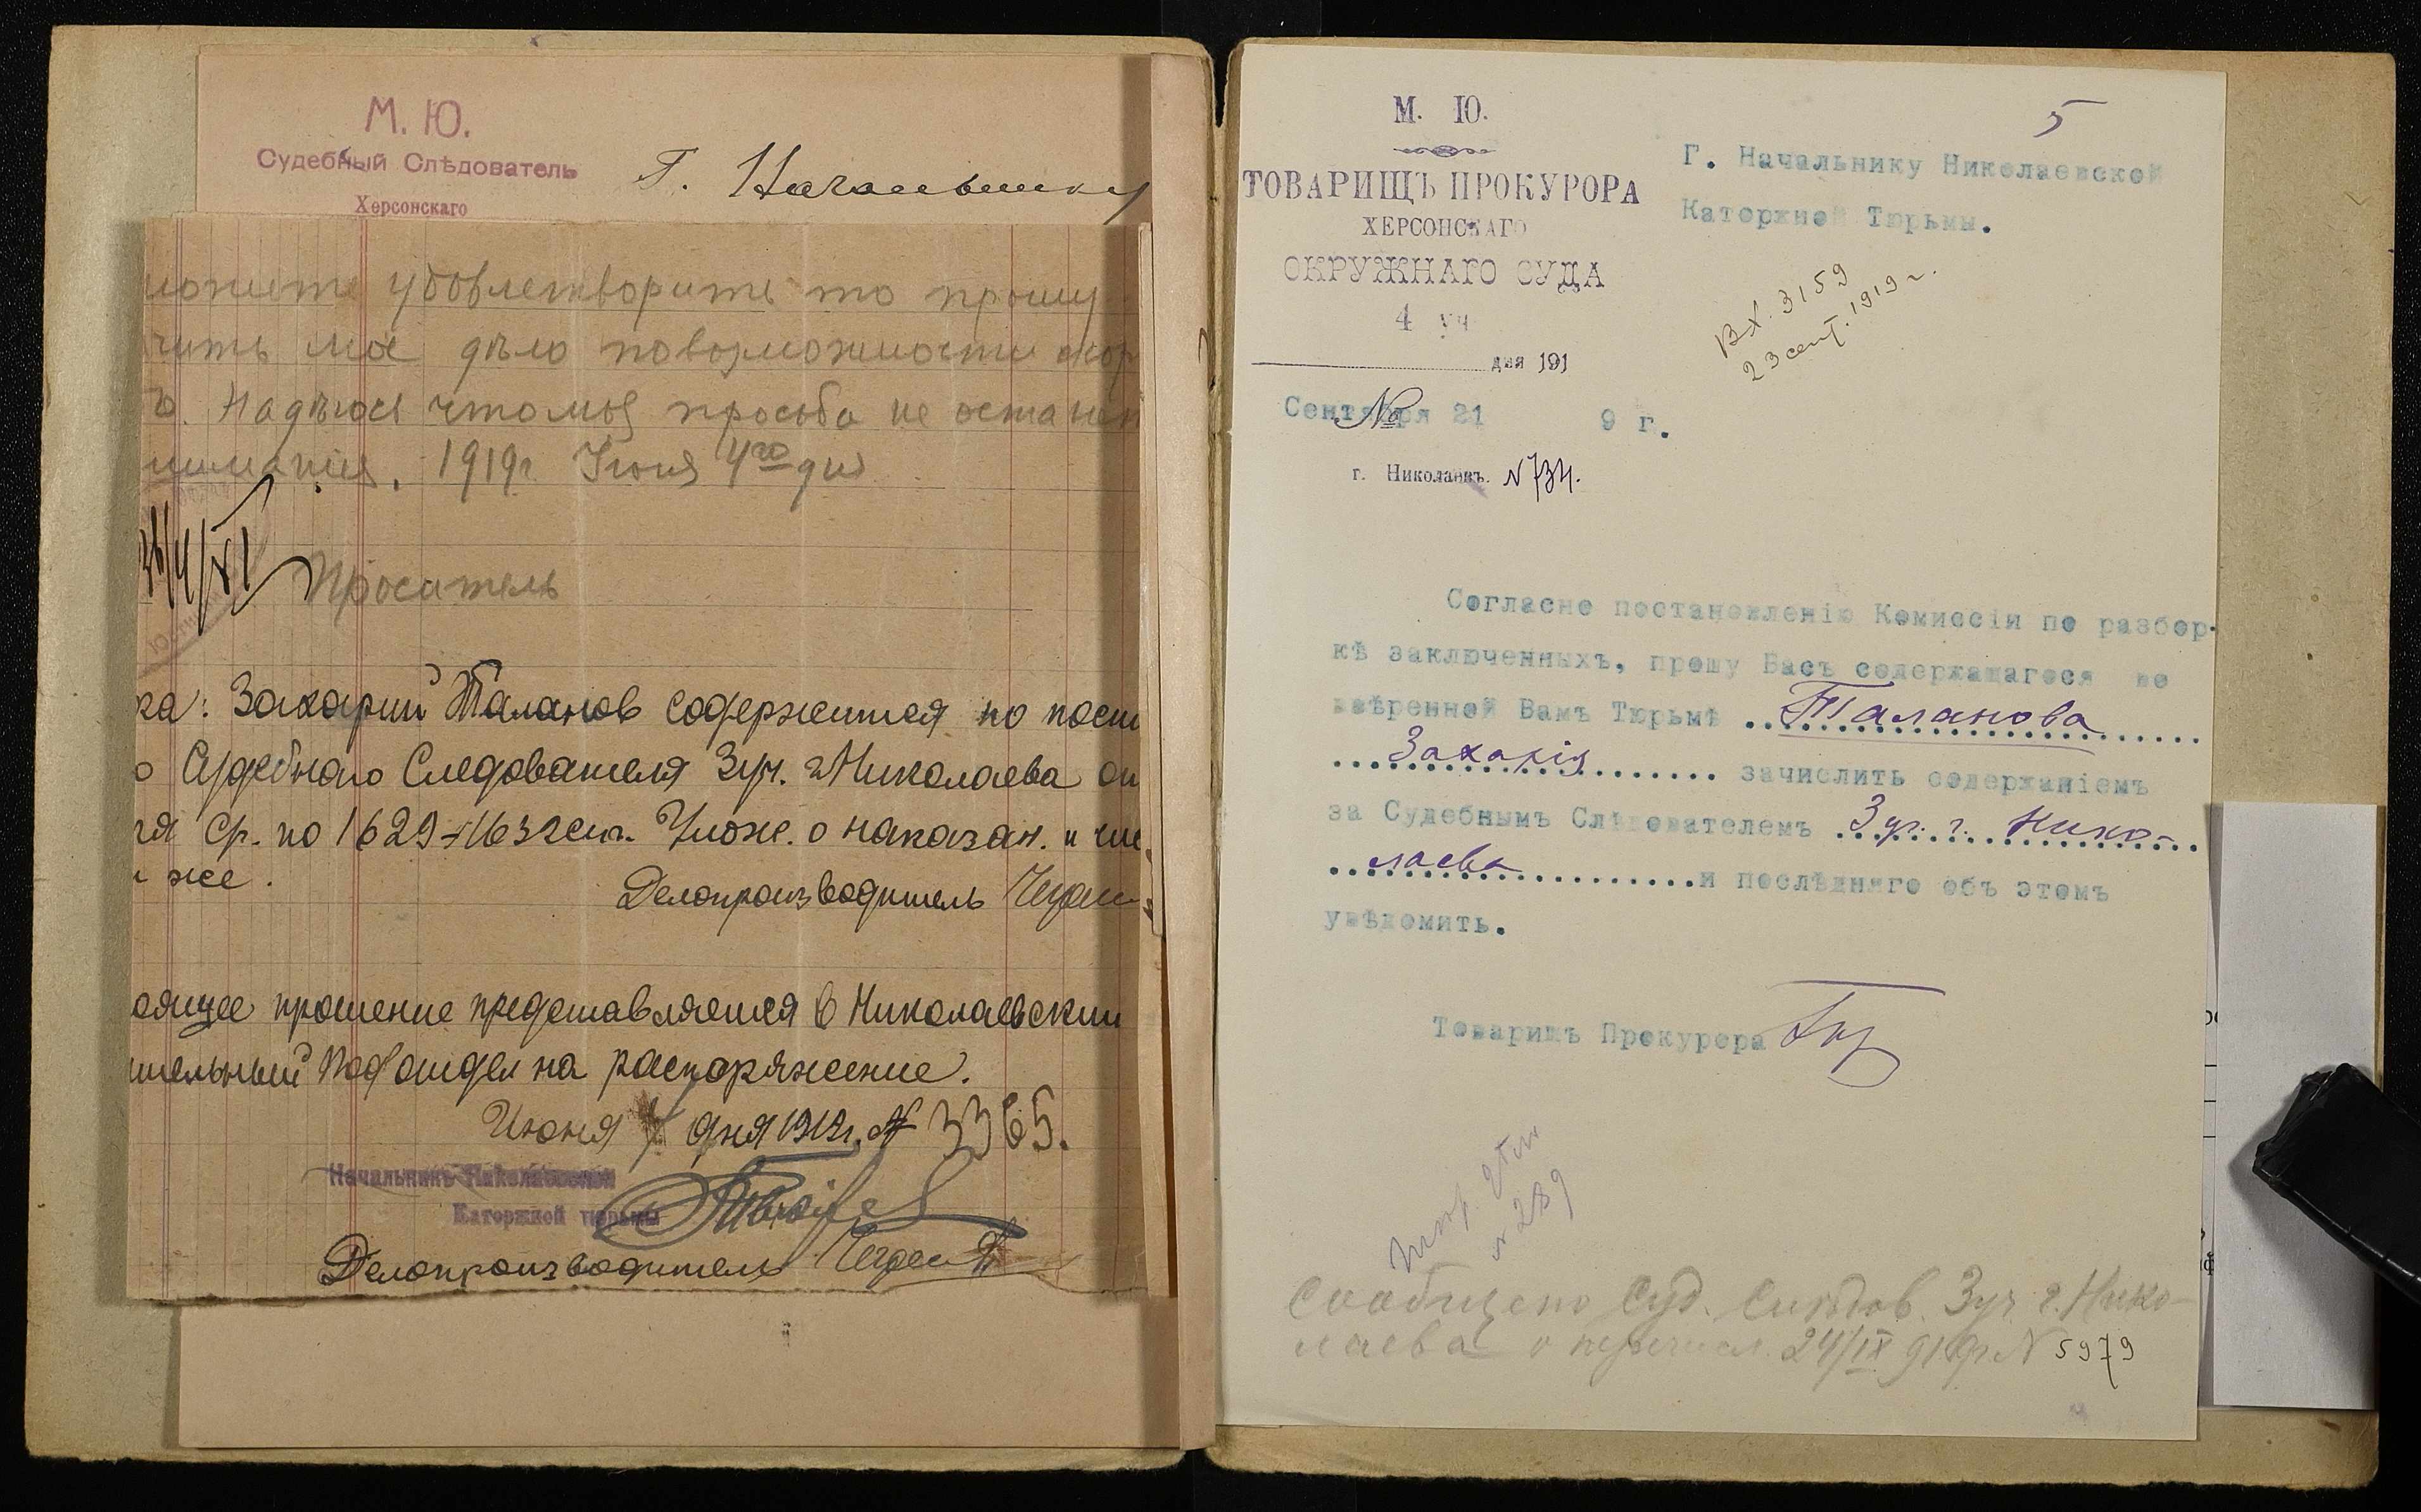 М. Ю.
Судебный Слѣдователь
Херсонскаго
Г. Начальнику
удовлетворить то прошу
мое дѣло повозможности скор
Надѣюсь что моя просьба не останет
1919г. Июня 4го дня
Проситель
ка: Захарий Таланов содержится по пост
о Судебного Следователя 3 уч. г. Николаева от
ср. по 1629 и 1632 ст. Улож. о наказан. и
же.
Делопроизводитель
оящее прошение представляется в Николаевский
ительный Подотдел на распоряжение.
Июня 4 дня 1919г. № 3365.
Начальникъ Николаевской
Каторжной тюрьмы
Делопроизводитель
5
М. Ю.
ТОВАРИЩЪ ПРОКУРОРА
ХЕРСОНСКАГО
ОКРУЖНАГО СУДА
4 уч
дня 191
Сентября 21 9 г.
№
г. Николаевъ. N 734.
Г. Начальнику Николаевской
Каторжной Тюрьмы.
Вх. 3159
23 сент. 1919 г.
Согласно постановленію Комиссіи по разбор-
кѣ заключенныхъ, прошу Васъ содержащагося во
ввѣренной Вамъ Тюрьмѣ ..Таланова..
..Захарія.. зачислить содержаніемъ
за Судебнымъ Слѣдователемъ 3 уч. г. Нико-
лаева и послѣдняго объ этомъ
увѣдомить.
Товарищъ Прокурора
№ 289
Сообщено Суд. Следов. 3 уч. г. Нико-
лаева о перечисл. 24/IX 919 г. N 5979